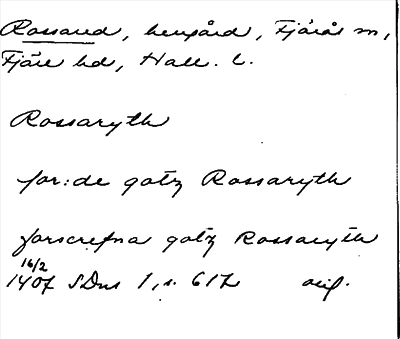 Rossared, herrgård, Fjärås sn,
Fjäre hd, Hall. l.
Rossaryth
for:de gotz Rossaryth
forscrefna gotz Rossaryth
16/2
1407 SDns 1, s. 617 orig.